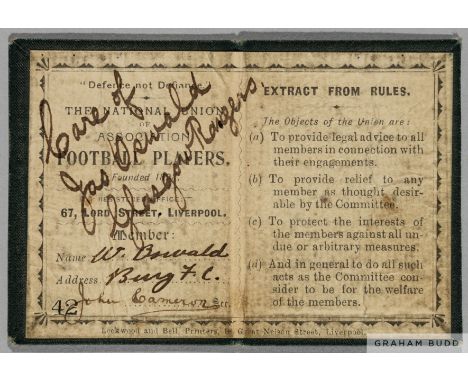 "Defence not Defiance"
THE NATIONAL UNION
OF
ASSOCIATION
FOOTBALL PLAYERS.
Founded
REGISTERED OFFICE
67, LORD STREET, LIVERPOOL.
Member:
Name W. Oswald
Address Bury F.C.
John Cameron Sec.
42
Care of
Jas Oswald
Glasgow Rangers
EXTRACT FROM RULES.
The Objects of the Union are:
(a) To provide legal advice to all
members in connection with
their engagements.
(b) To provide relief to any
member as thought desir-
able by the Committee.
(c) To protect the interests of
the members against all un-
due or arbitrary measures.
(d) And in general to do all such
acts as the Committee con-
sider to be for the welfare
of the members.
Lockwood and Bell, Printers, Great Nelson Street, Liverpool.
GRAHAM BUDD